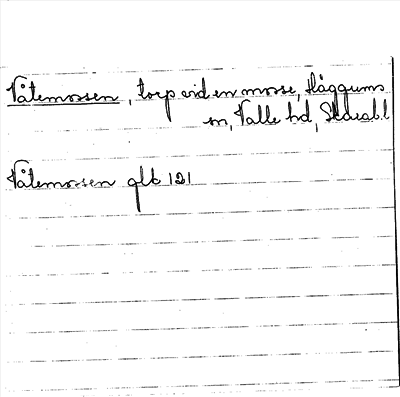 Våtemossen, torp vid en mosse, Häggums
sn, Valle hd, Skarab.l
Våtemossen glb 121